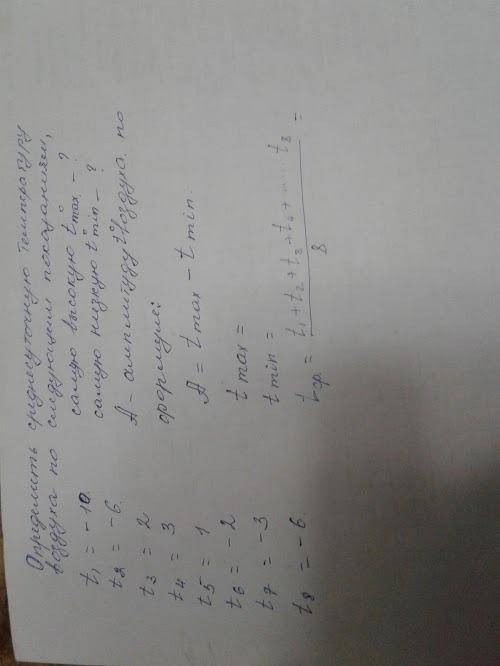 Определить среднесуточную температуру
воздуха по следующим показаниям,
t1 = -10 самую высокую t° max - ?
t2 = -6. самую низкую t° min - ?
t3 = 2 А - амплитуду t° воздуха по
t4 = 3 формуле:
t5 = 1 A = t max - t min.
t6 = -2 t max =
t7 = -3 t min =
t8 = -6 t ср. = t1 + t2 + t3 + t4 + ... t8 / 8 =